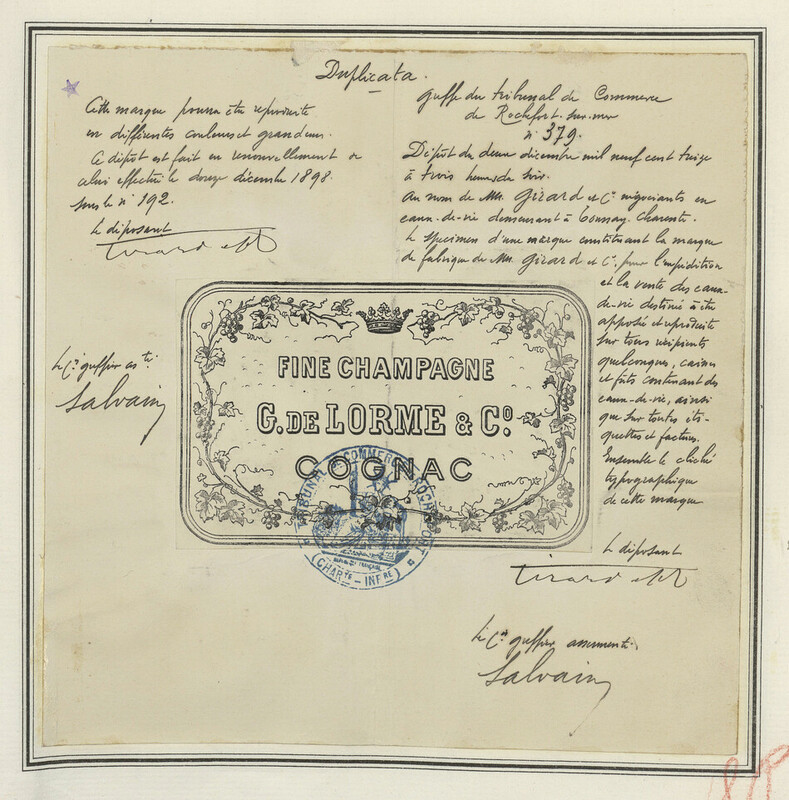 Duplicata.
Cette marque pourra être reproduite
en différentes couleurs et grandeurs.
Ce dépôt est fait en renouvellement de
celui effectué le douze décembre 1898
sous le n° 192.
Le déposant
Girard et Cie
Le Cis greffier asté
Salvain
Greffe du tribunal de Commerce
de Rochefort-sur-mer
n° 379.
Dépôt du deux décembre mil neuf cent treize
à trois heures du soir.
Au nom de MM. Girard et Cie négociants en
eaux-de-vie demeurant à Tonnay-Charente.
Le Specimen d'une marque constituant la marque
de fabrique de MM. Girard et Cie, pour l'expédition
et la vente des eaux-
de-vie destinée à être
apposée et reproduite
sur tous récipients
quelconques, caisses
et fûts contenant des
eaux-de-vie, ainsi
que sur toutes éti-
quettes et factures.
Ensemble le cliché
typographique
de cette marque
Le déposant
Girard et Cie
Le Cis greffier assermenté
Salvain
FINE CHAMPAGNE
G. DE LORME & Co.
COGNAC
TRIBUNAL DE COMMERCE ROCHEFORT
(CHARTE-INFRE)